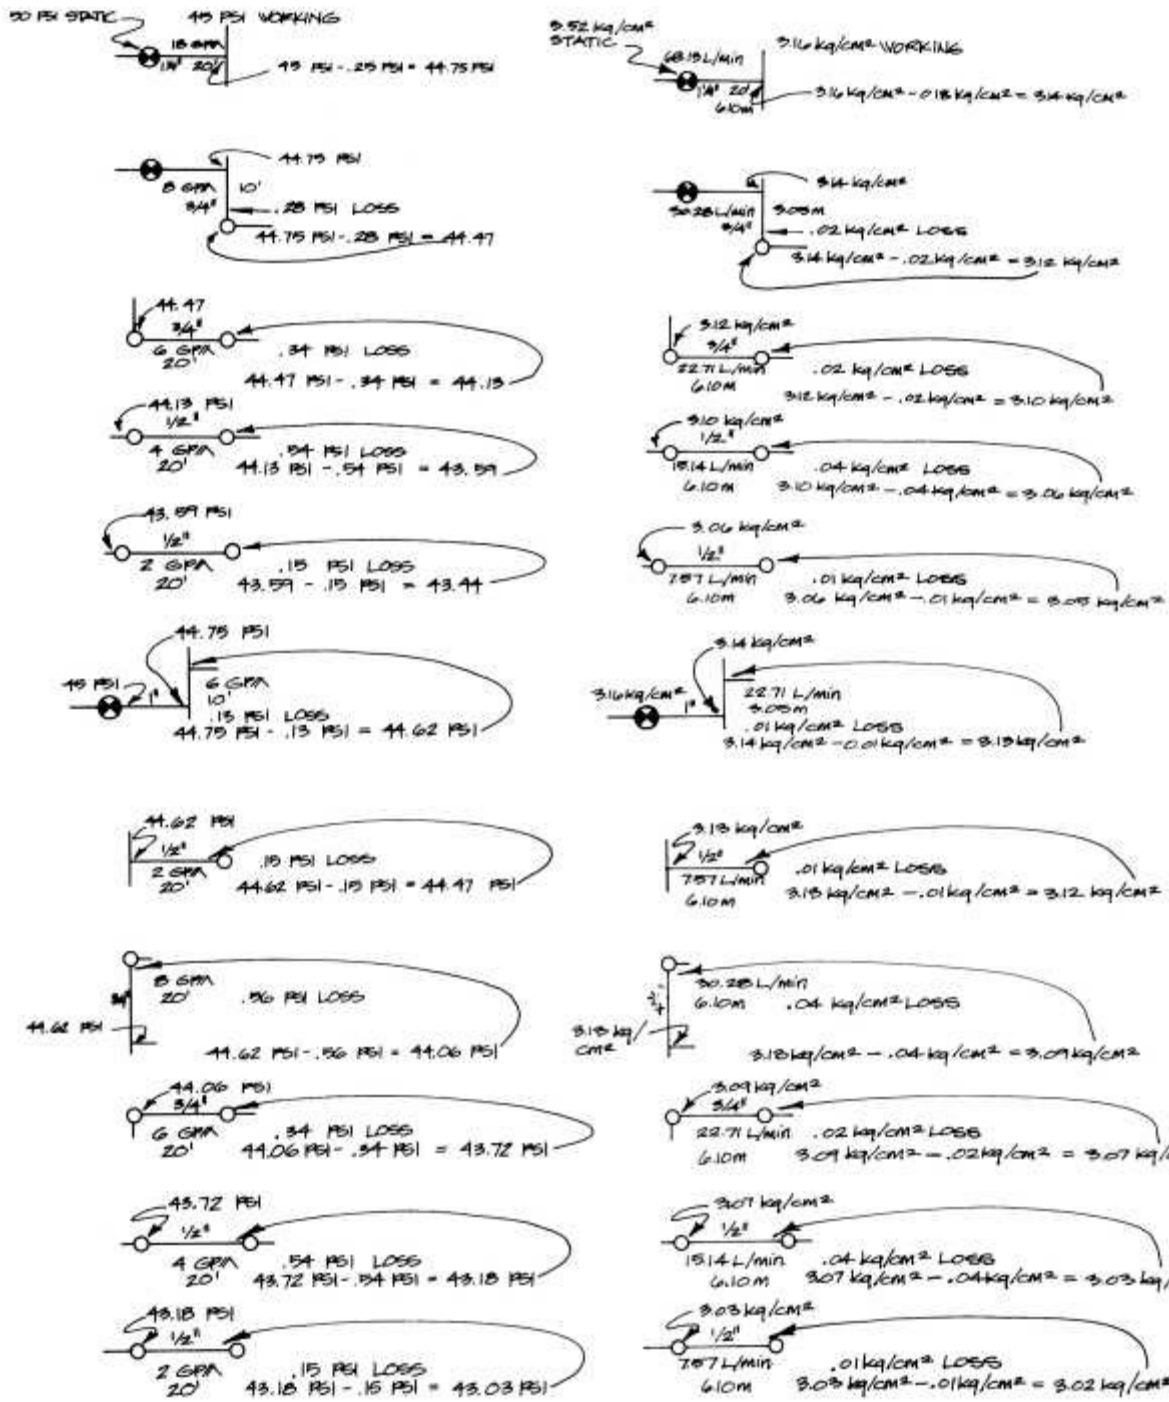 50 PSI STATIC
45 PSI WORKING
18 GPM
1¼" 20'
45 PSI - .25 PSI = 44.75 PSI
44.75 PSI
8 GPM 10'
3/4"
.28 PSI LOSS
44.75 PSI - .28 PSI = 44.47
44.47
3/4"
6 GPM
20'
.34 PSI LOSS
44.47 PSI - .34 PSI = 44.13
44.13 PSI
1/2"
4 GPM
20'
.54 PSI LOSS
44.13 PSI - .54 PSI = 43.59
43.59 PSI
1/2"
2 GPM
20'
.15 PSI LOSS
43.59 - .15 PSI = 43.44
44.75 PSI
45 PSI
1"
6 GPM
10'
.13 PSI LOSS
44.75 PSI - .13 PSI = 44.62 PSI
44.62 PSI
1/2"
2 GPM
20'
.15 PSI LOSS
44.62 PSI - .15 PSI = 44.47 PSI
8 GPM
20'
3/4"
.56 PSI LOSS
44.62 PSI
44.62 PSI - .56 PSI = 44.06 PSI
44.06 PSI
3/4"
6 GPM
20'
.34 PSI LOSS
44.06 PSI - .34 PSI = 43.72 PSI
43.72 PSI
1/2"
4 GPM
20'
.54 PSI LOSS
43.72 PSI - .54 PSI = 43.18 PSI
43.18 PSI
1/2"
2 GPM
20'
.15 PSI LOSS
43.18 PSI - .15 PSI = 43.03 PSI
3.52 kg/cm²
STATIC
3.16 kg/cm² WORKING
68.13 L/min
1¼" 20'
6.10m
3.16 kg/cm² - .018 kg/cm² = 3.14 kg/cm²
3.14 kg/cm²
30.28 L/min 3.05m
3/4"
.02 kg/cm² LOSS
3.14 kg/cm² - .02 kg/cm² = 3.12 kg/cm²
3.12 kg/cm²
3/4"
22.71 L/min
6.10m
.02 kg/cm² LOSS
3.12 kg/cm² - .02 kg/cm² = 3.10 kg/cm²
3.10 kg/cm²
1/2"
15.14 L/min
6.10m
.04 kg/cm² LOSS
3.10 kg/cm² - .04 kg/cm² = 3.06 kg/cm²
3.06 kg/cm²
1/2"
7.57 L/min
6.10m
.01 kg/cm² LOSS
3.06 kg/cm² - .01 kg/cm² = 3.05 kg/cm²
3.14 kg/cm²
3.16 kg/cm²
1"
22.71 L/min
3.05m
.01 kg/cm² LOSS
3.14 kg/cm² - 0.01 kg/cm² = 3.13 kg/cm²
3.13 kg/cm²
1/2"
7.57 L/min
6.10m
.01 kg/cm² LOSS
3.13 kg/cm² - .01 kg/cm² = 3.12 kg/cm²
30.28 L/min
6.10m
.04 kg/cm² LOSS
3.13 kg/
cm²
3.13 kg/cm² - .04 kg/cm² = 3.09 kg/cm²
3.09 kg/cm²
3/4"
22.71 L/min
6.10m
.02 kg/cm² LOSS
3.09 kg/cm² - .02 kg/cm² = 3.07 kg/
3.07 kg/cm²
1/2"
15.14 L/min
6.10m
.04 kg/cm² LOSS
3.07 kg/cm² - .04 kg/cm² = 3.03 kg/
3.03 kg/cm²
1/2"
7.57 L/min
6.10m
.01 kg/cm² LOSS
3.03 kg/cm² - .01 kg/cm² = 3.02 kg/cm²